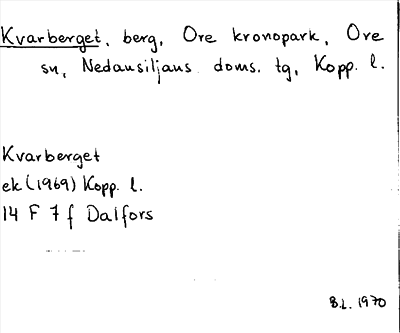 Kvarberget, berg, Ore kronopark, Ore
sn, Nedansiljans doms. tg, Kopp. l.
Kvarberget
ek (1969) Kopp. l.
14 F 7 f Dalfors
B.L. 1970